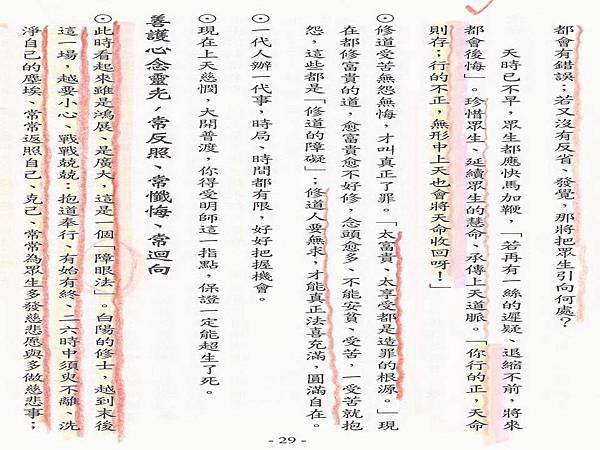 都會有錯誤；若又沒有反省、發覺，那將把眾生引向何處？
天時已不早，眾生都應快馬加鞭，「若再有一絲的遲疑、退縮不前，將來
都會後悔」。珍惜眾生、延續眾生的慧命，承傳上天道脈。「你行的正，天命
則存；行的不正，無形中上天也會將天命收回呀！」
⊙修道受苦無怨無悔，才叫真正了罪。「太富貴、太享受都是造罪的根源。」現
在都修富貴的道，愈富貴愈不好修，念頭愈多、不能安貧、受苦，一受苦就抱
怨，這些都是「修道的障礙」；修道人要無求，才能真正法喜充滿，圓滿自在。
⊙一代人辦一代事，時局、時間都有限，好好把握機會。
⊙現在上天慈憫，大開普渡，你得受明師這一指點，保證一定能超生了死。
善護心念靈光，常反照、常懺悔、常迴向
⊙此時看起來雖是鴻展、是廣大，這是一個「障眼法」。白陽的修士，越到末後
這一場，越要小心、戰戰兢兢；抱道奉行、有始有終、二六時中須臾不離、洗
淨自己的塵埃、常常返照自己、克己、常常為眾生多發慈悲愿與多做慈悲事；
- 29 -